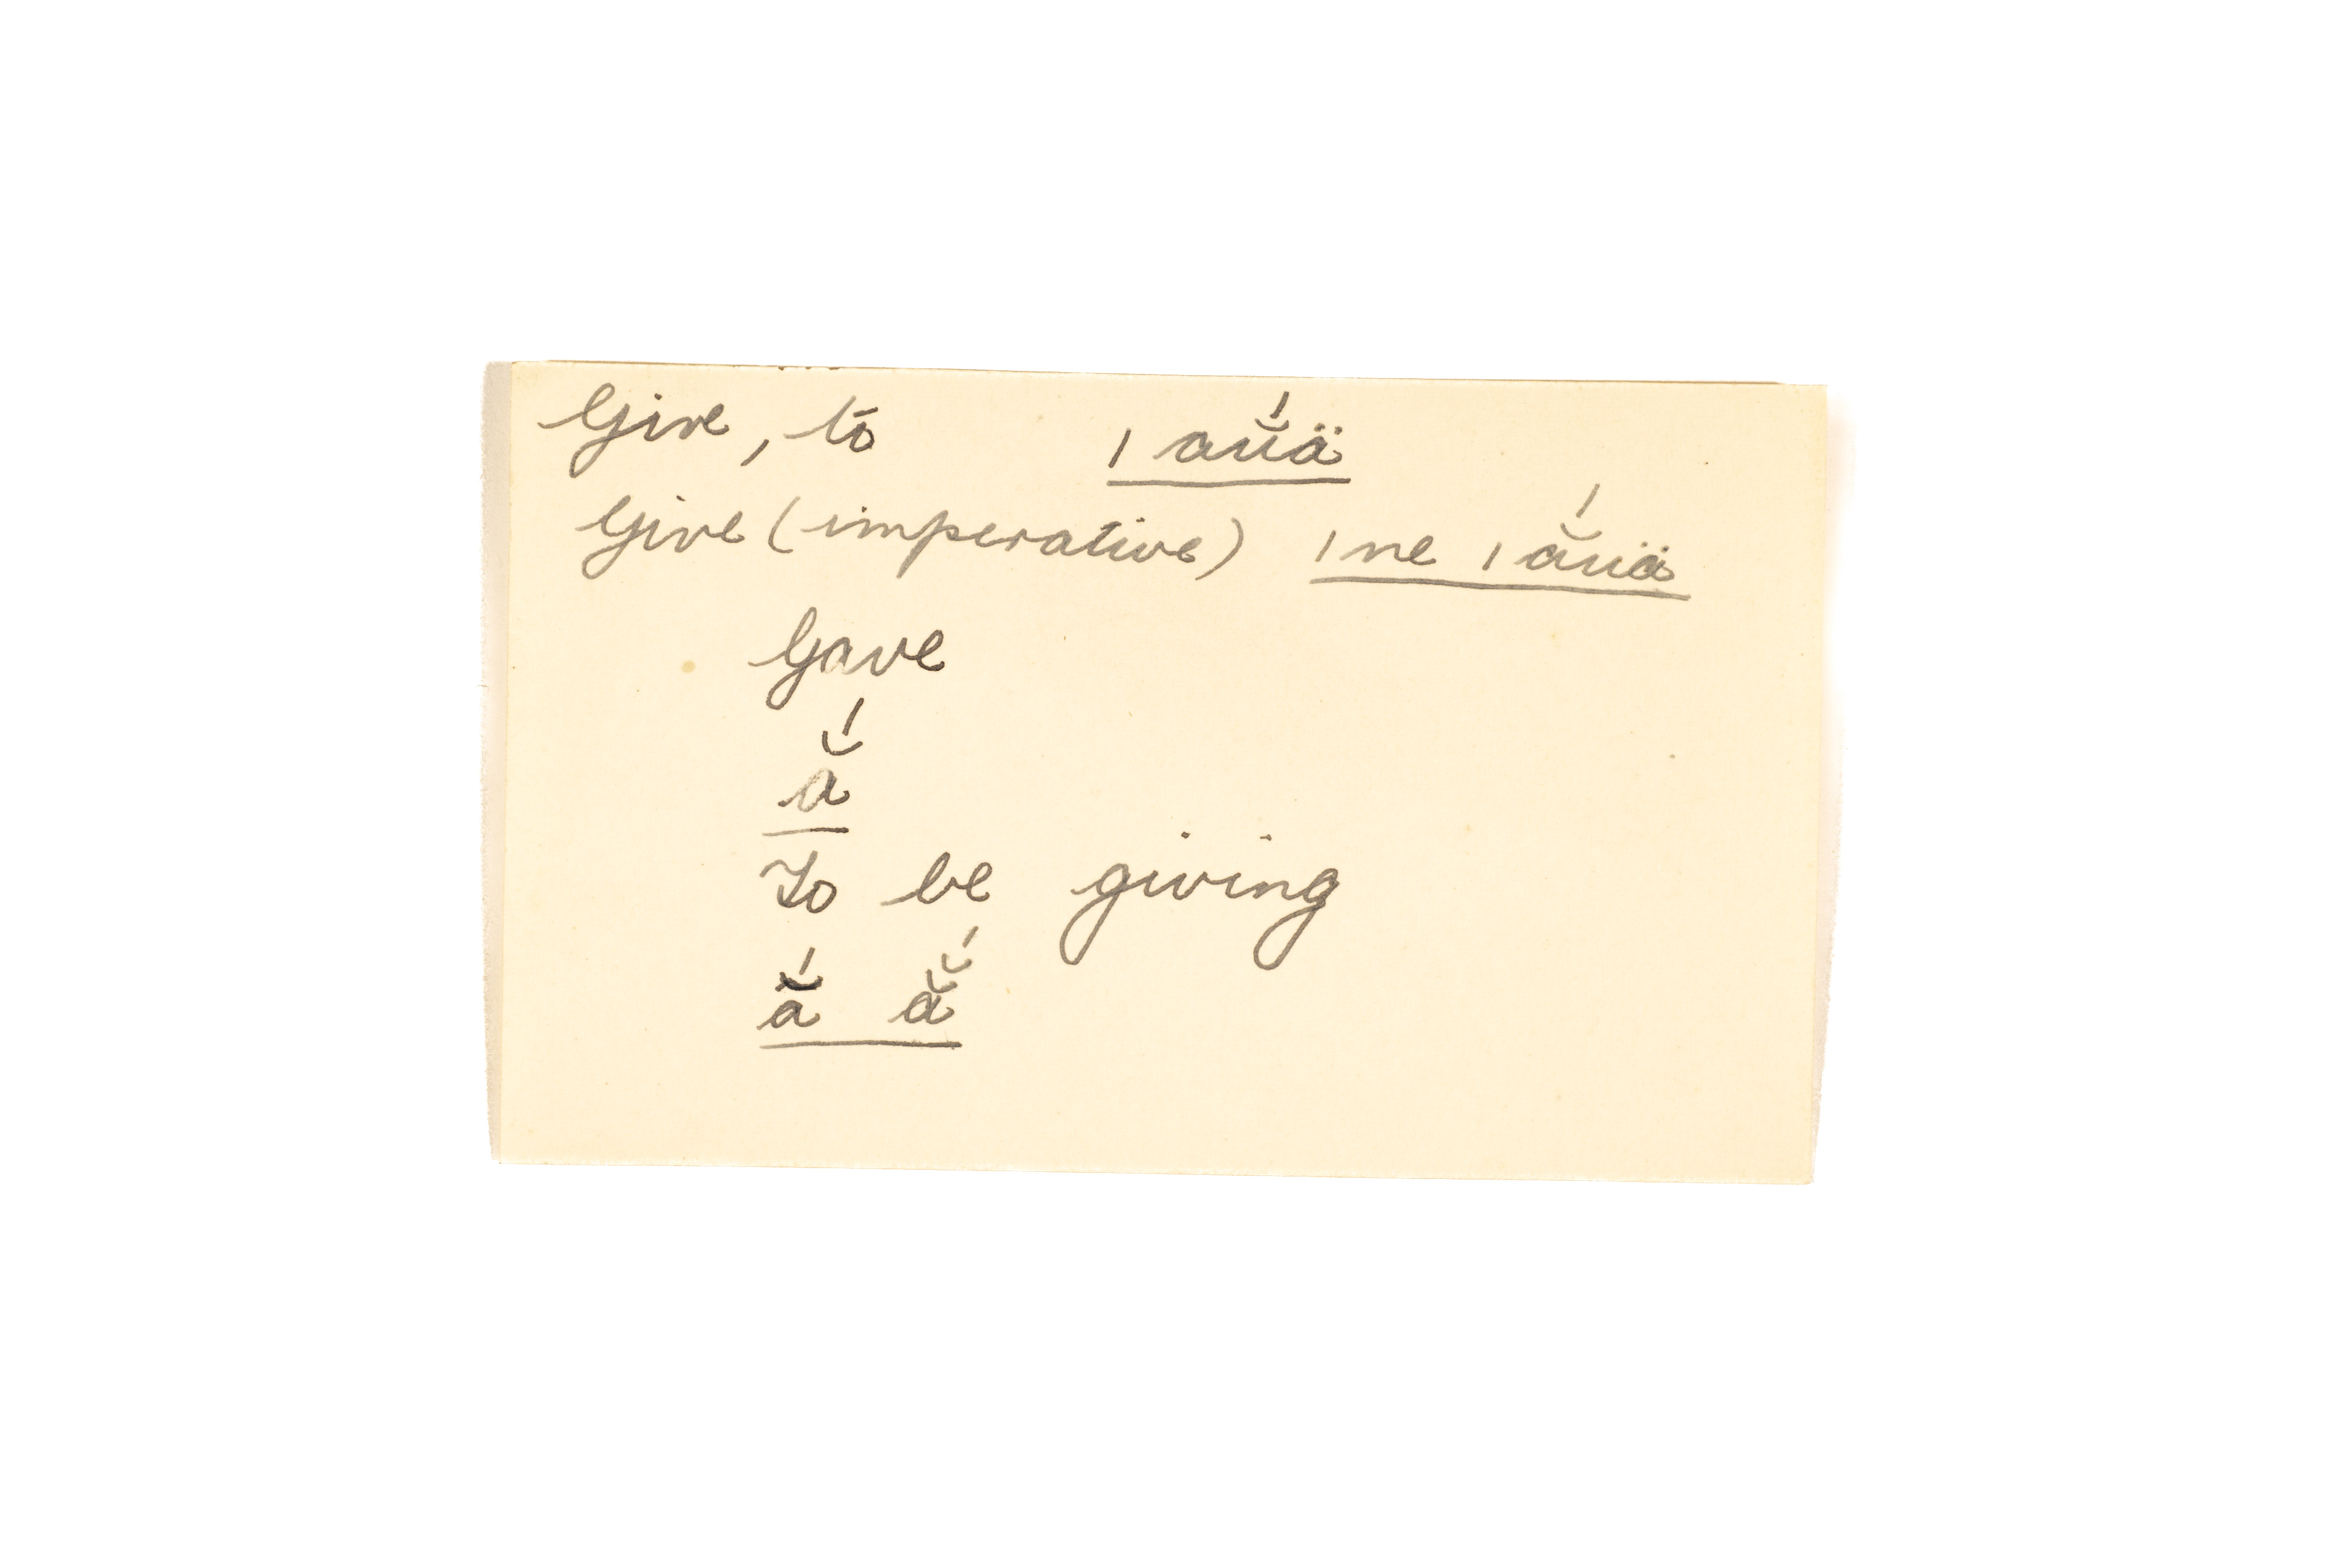 Give, to ı aŭ́ä
Give (imperative) ıne ı ắuä
Gave
ắ
To be giving
ắ ắ